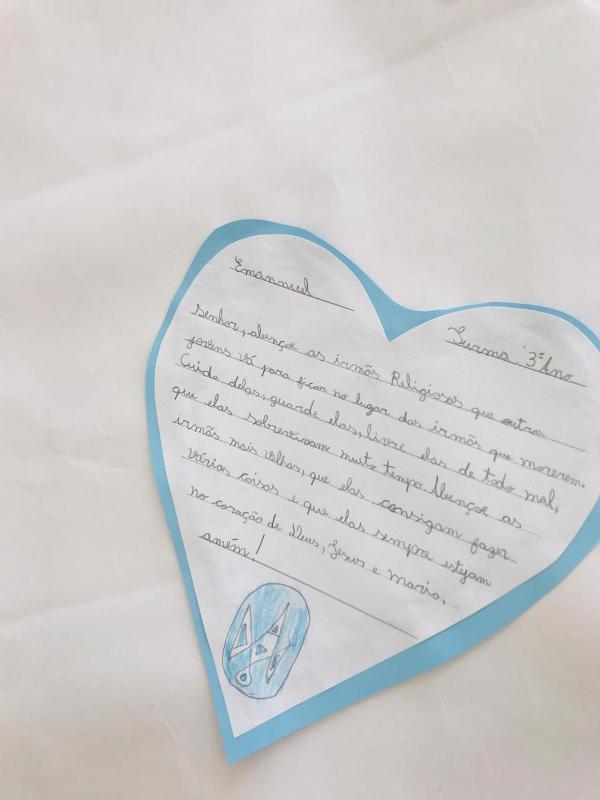 Emannuel
Turma 3º Ano
Senhor, abençoe as irmãs Religiosas que outras
jovens vá para ficar no lugar das irmãs que morerem.
Cuide delas, guarde elas, livre elas de todo mal,
que elas sobrevivam muito tempo. Abençoe as
irmãs mais velhas, que elas consigam fazer
várias coisas e que elas sempre estejam
no coração de Deus, Jesus e Maria,
amém!